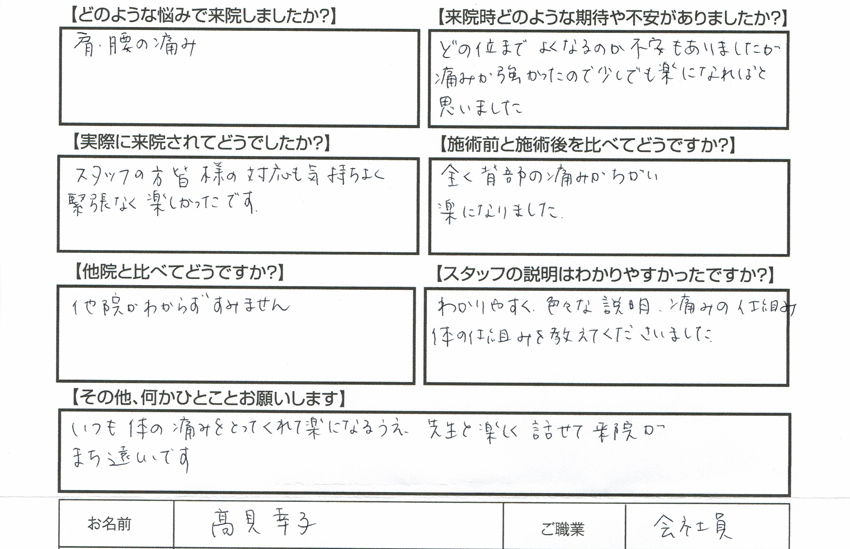 【どのような悩みで来院しましたか?】
肩・腰の痛み
【来院時どのような期待や不安がありましたか?】
どの位まで よくなるのか 不安もありましたが
痛みが強かったので少しでも楽になればと
思いました
【実際に来院されてどうでしたか?】
スタッフの方皆様の対応も気持ちよく
緊張なく楽しかったです。
【施術前と施術後を比べてどうですか?】
全く背部の痛みがちがい
楽になりました。
【他院と比べてどうですか?】
他院がわからずすみません
【スタッフの説明はわかりやすかったですか?】
わかりやすく、色々な説明、痛みの仕組み
体の仕組みを教えてくださいました。
【その他、何かひとことお願いします】
いつも体の痛みをとってくれて楽になるうえ、先生と楽しく話せて来院が
まち遠いです
お名前 髙見幸子 ご職業 会社員